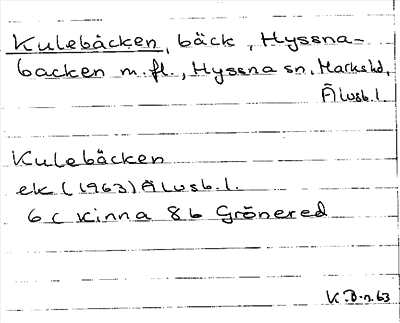 Kulebäcken, bäck, Hyssna-
backen m.fl., Hyssna sn, Markshd,
Älvsb.l.
Kulebäcken
ek (1963) Älvsb.l.
6 c Kinna 8 b Grönered
K.D-n.63